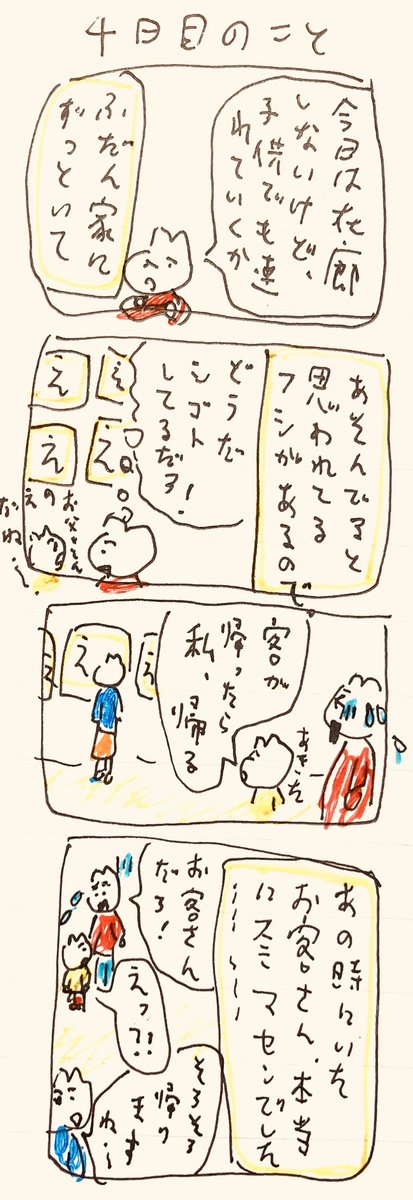 4日目のこと
今日は在廊
しないけど、
子供でも連
れていくか
ふだん家に
ずっといて
あそんでると
思われてる
フシがあるので。
どうだ
シゴト
してるだろ!
え
え
え
え
お父さん
えの
だね〜
客が
帰ったら
私、帰る
あきた
え
え
え
あの時にいた
お客さん、本当
にスミマセンでした
お客さん
だろ!
えっ?!
そろそろ
帰り
ます
ね〜